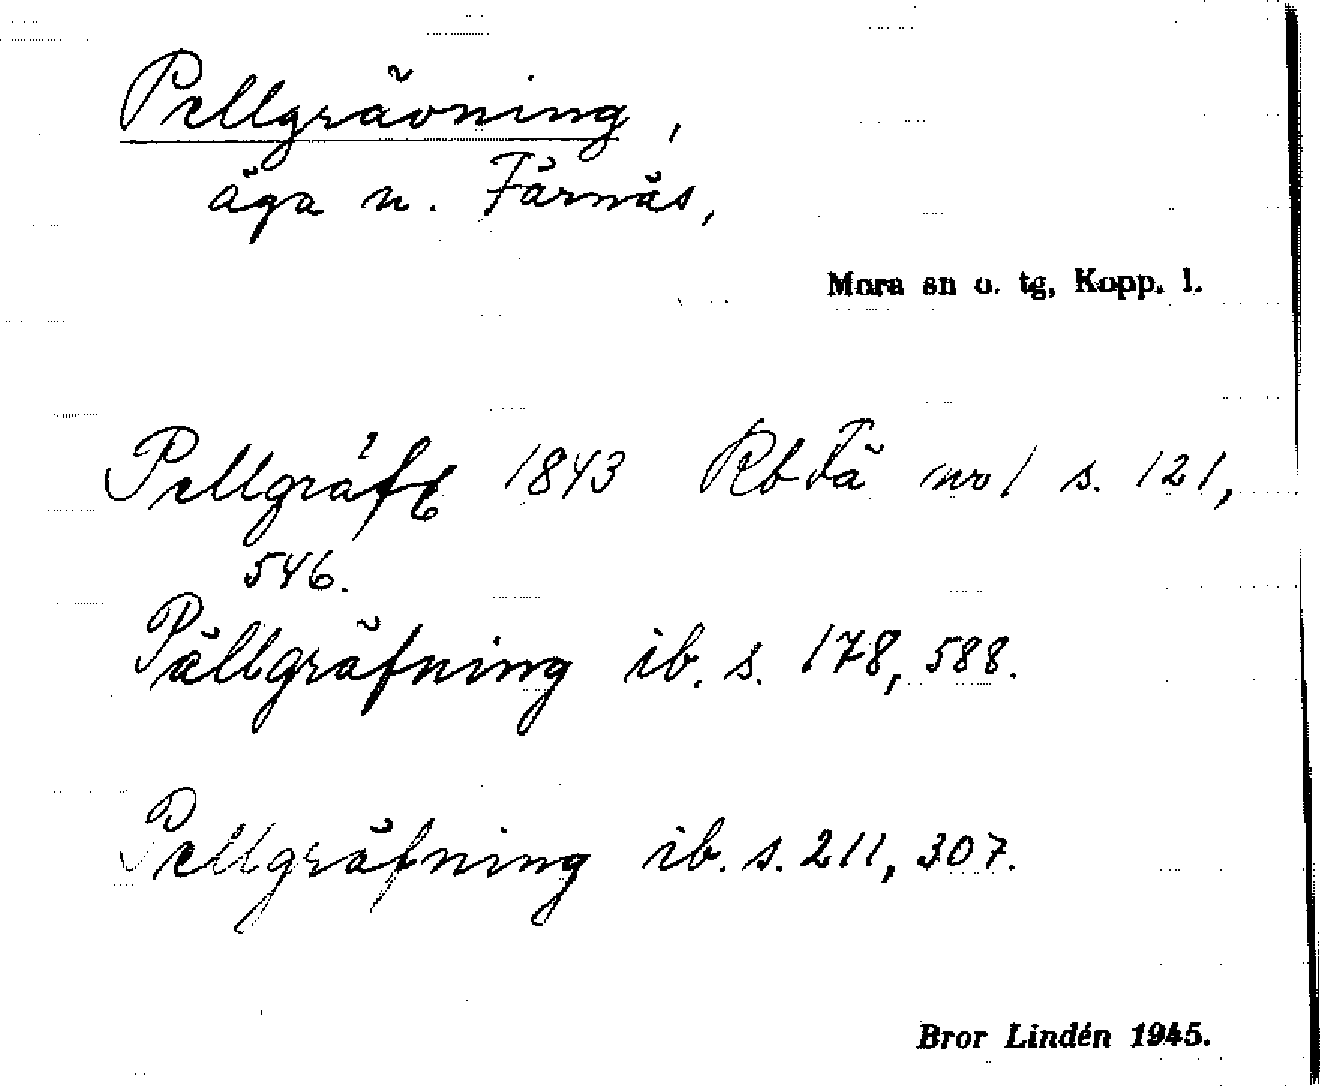 Pellgrävning,
äga n. Färnäs,
Mora sn o. tg, Kopp. l.
Pellgräf 1843 RbFä no 1 s. 121,
546.
Pällgräfning ib. s. 178, 588.
Pellgräfning ib. s. 211, 307.
Bror Lindén 1945.